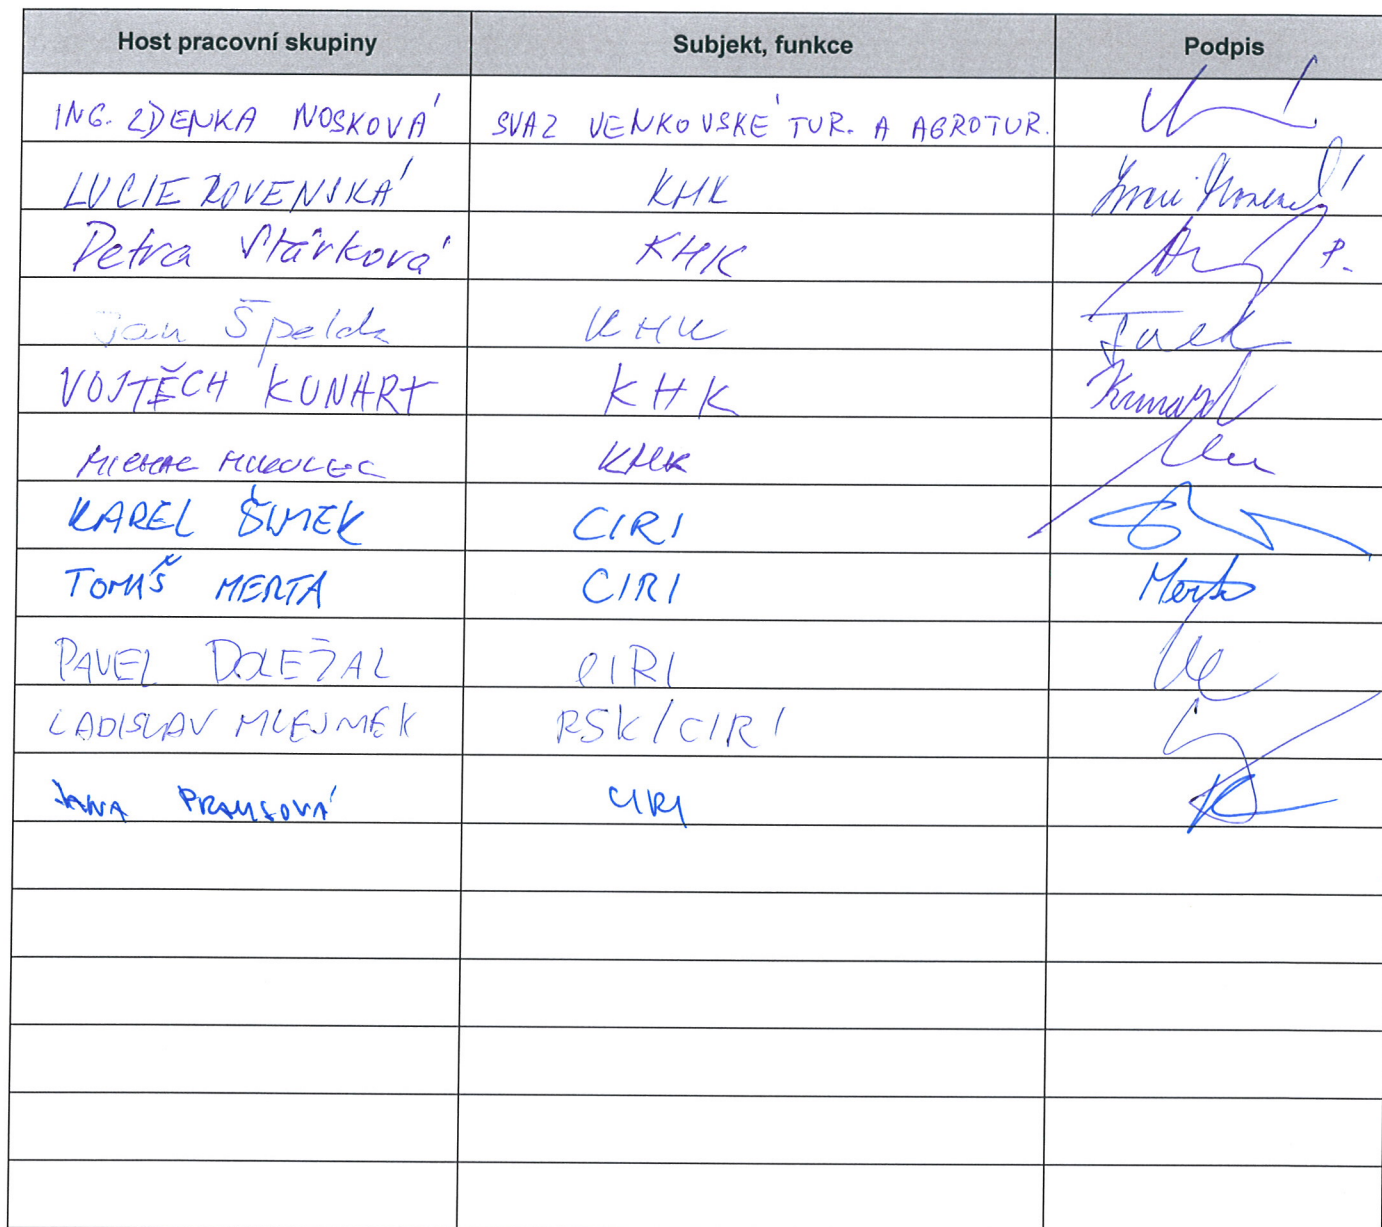 Host pracovní skupiny Subjekt, funkce Podpis
ING. ZDENKA NOSKOVÁ SVAZ VENKOVSKÉ TUR. A AGROTUR.
LUCIE ROVENSKÁ KHK
Petra Stárková KHK
Jan Špelda KHK
VOJTĚCH KUNART KHK Kunart
KHK
KAREL ŠIMEK CIRI
TOMÁŠ MERTA CIRI Merta
PAVEL DOLEŽAL CIRI
LADISLAV MLEJNEK RSK/CIRI
JANA CIRI